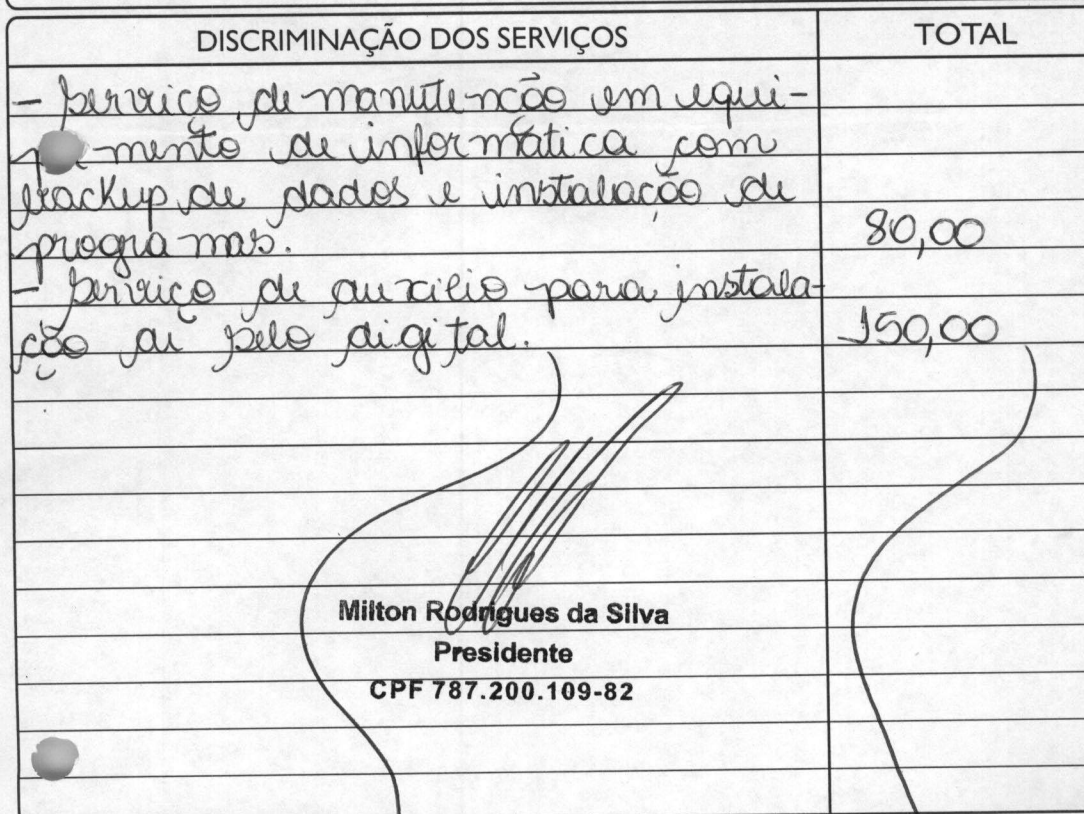 DISCRIMINAÇÃO DOS SERVIÇOS TOTAL
- Serviço de manutenção em equi-
pamento de informática com
backup de dados e instalação de
programas. 80,00
- Serviço de auxilio para instala-
ção de selo digital. 150,00
Milton Rodrigues da Silva
Presidente
CPF 787.200.109-82